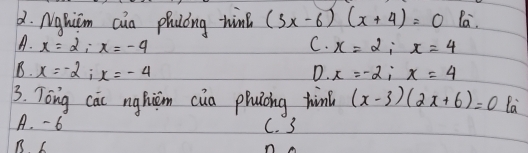 2. Nghiệm của phương trình (3x-6) (x+4) = 0 là.
A. x = 2 ; x = -4 C. x = 2 ; x = 4
B. x = -2 ; x = -4 D. x = -2 ; x = 4
3. Tổng các nghiệm của phương trình (x-3)(2x+6)=0 là
A. -6 C. 3
B. 6